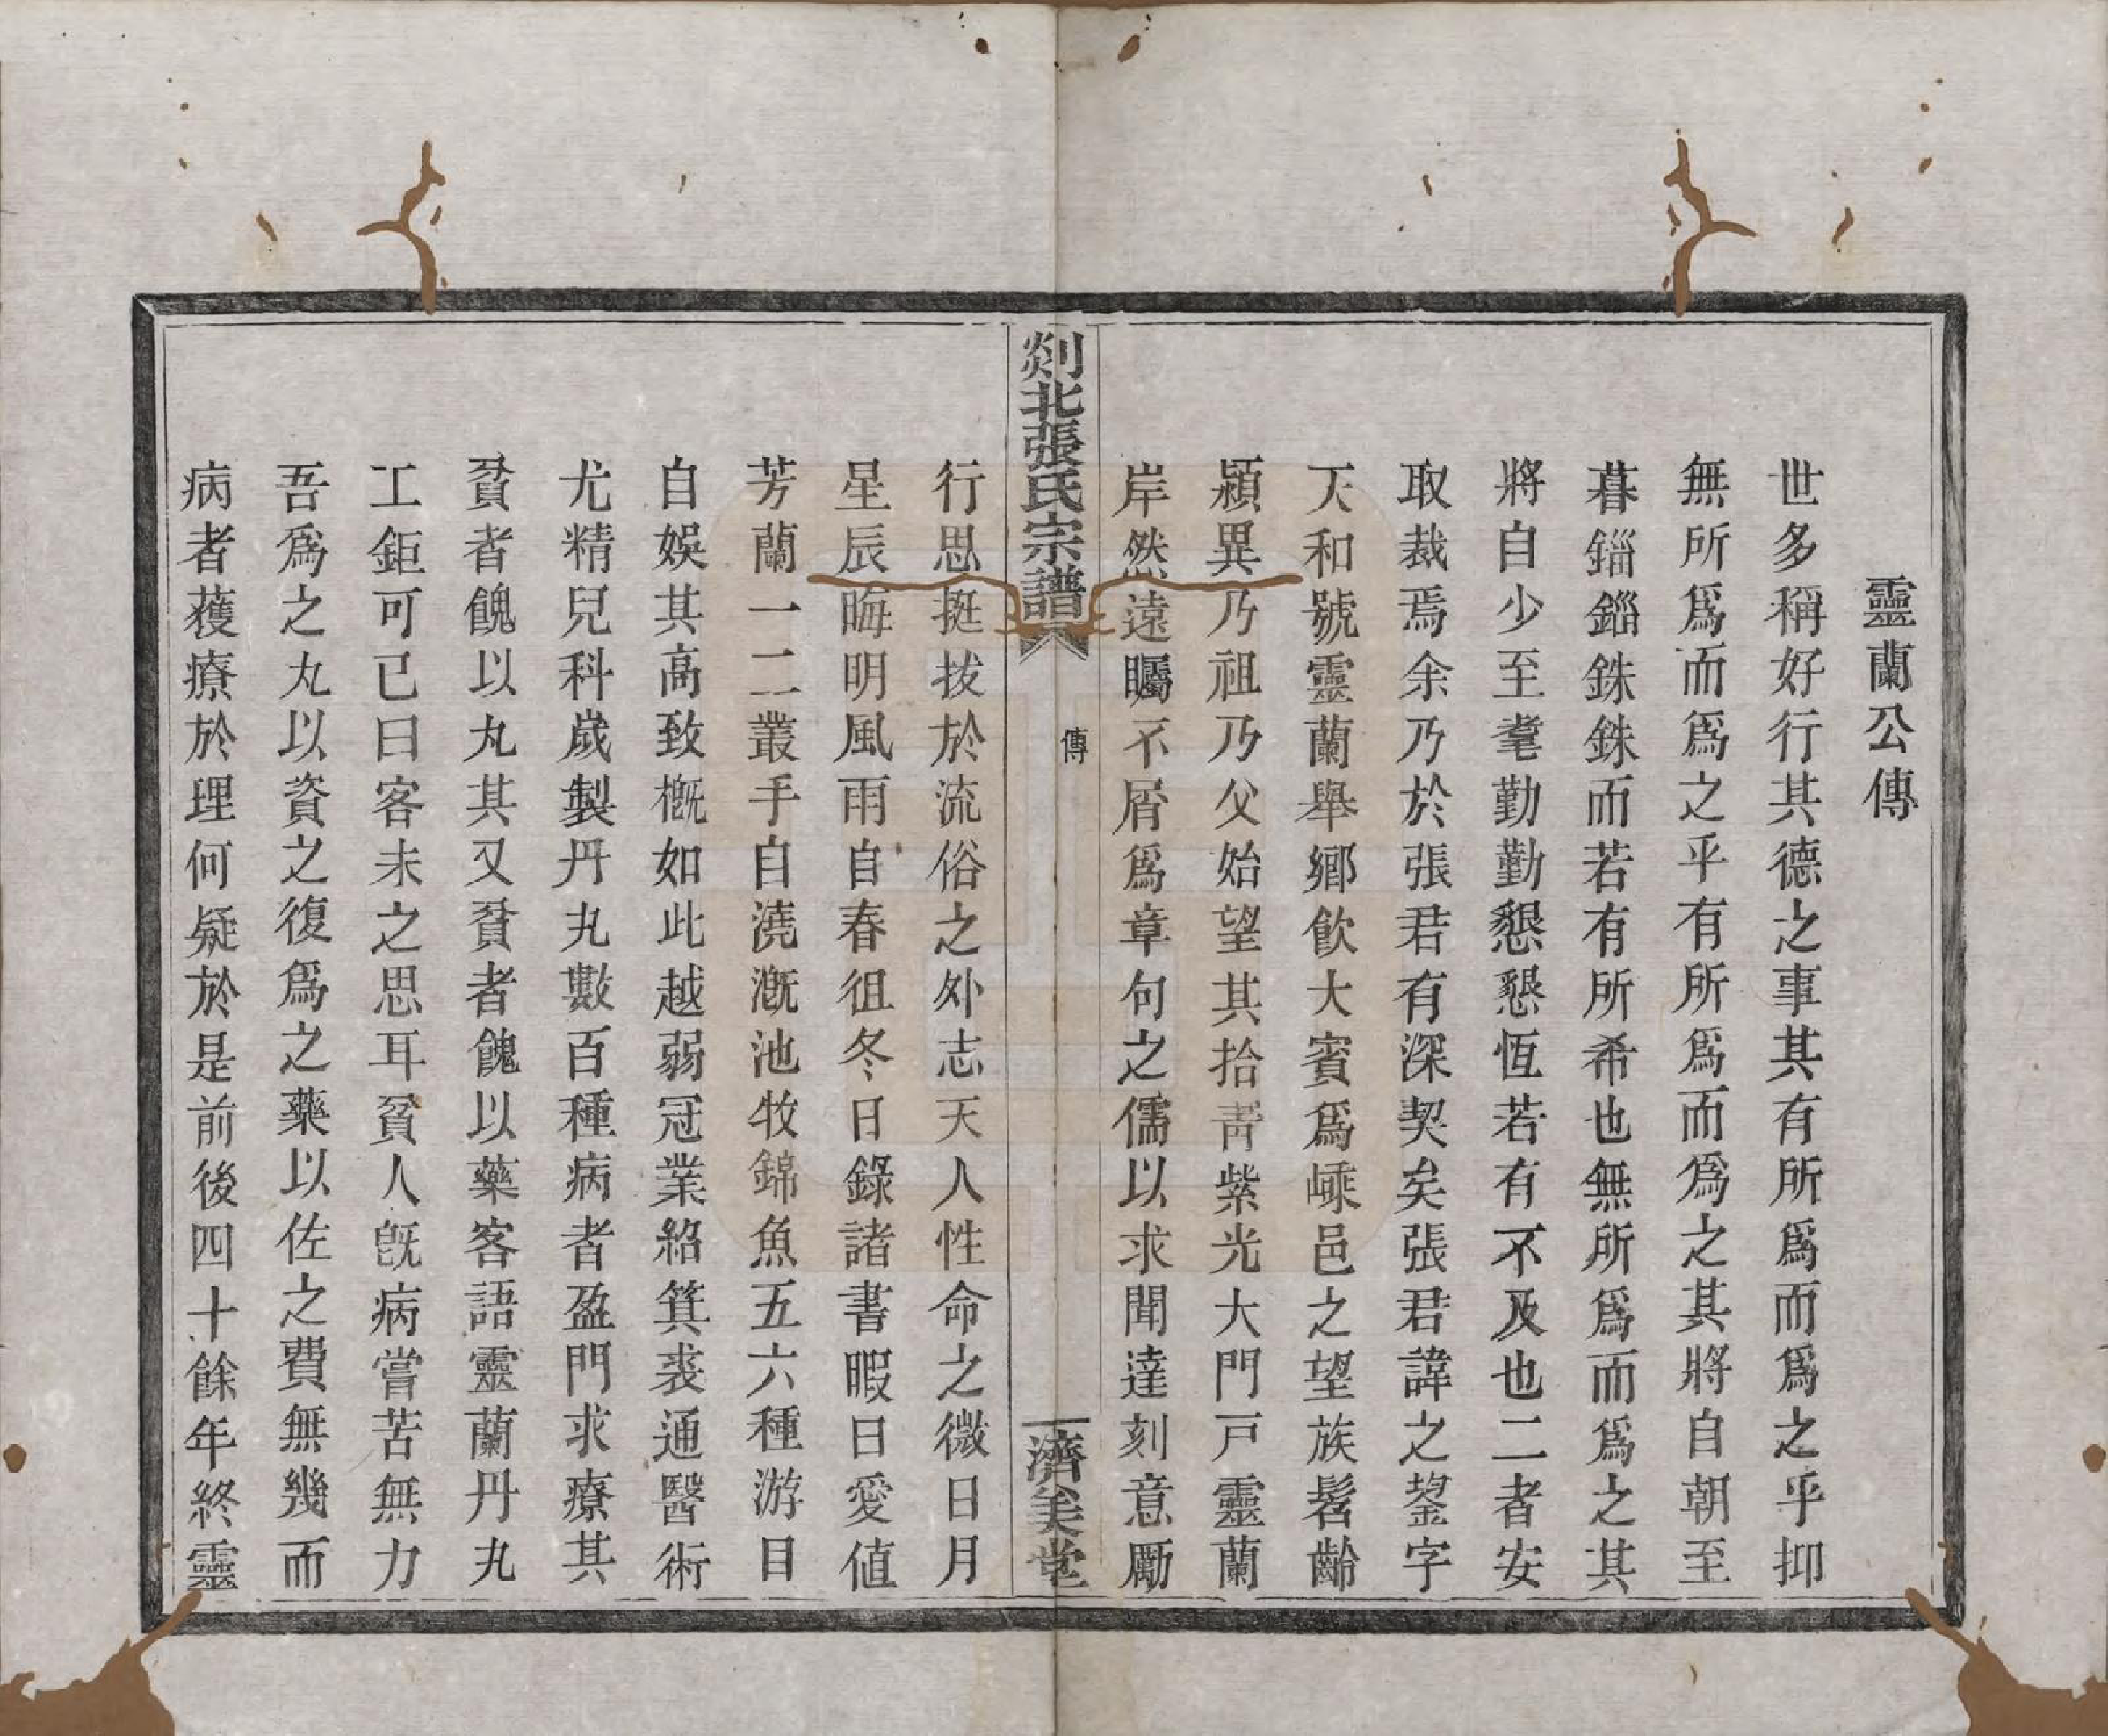 靈蘭公傳
世多稱好行其德之事其有所爲而爲之乎抑
無所爲而爲之乎有所爲而爲之其將自朝至
暮錙錙銖銖而若有所希也無所爲而爲之其
將自少至耄勤勤懇懇恆若有不及也二者安
取裁焉余乃於張君有深契矣張君諱之鋆字
天和號靈蘭舉鄉飲大賓爲嵊邑之望族髫齡
潁異乃祖乃父始望其拾靑紫光大門戸靈蘭
岸然遠矚不屑爲章句之儒以求聞達刻意勵
剡北張氏宗譜
傳
一濟美堂
行思挺拔於流俗之外志天人性命之微日月
星辰晦明風雨自春徂冬日錄諸書暇日愛値
芳蘭一二叢手自澆漑池牧錦魚五六種游目
自娛其高致槪如此越弱冠業紹箕裘通醫術
尤精兒科歲製丹丸數百種病者盈門求療其
貧者餽以丸其又貧者餽以藥客語靈蘭丹丸
工鉅可已曰客未之思耳貧人旣病嘗苦無力
吾爲之丸以資之復爲之藥以佐之費無幾而
病者獲療於理何疑於是前後四十餘年終靈